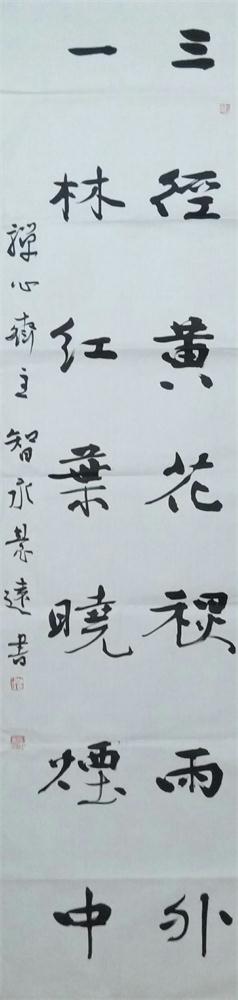 三徑黃花雨外
一林紅葉曉煙中
禪心齋主智永遠書